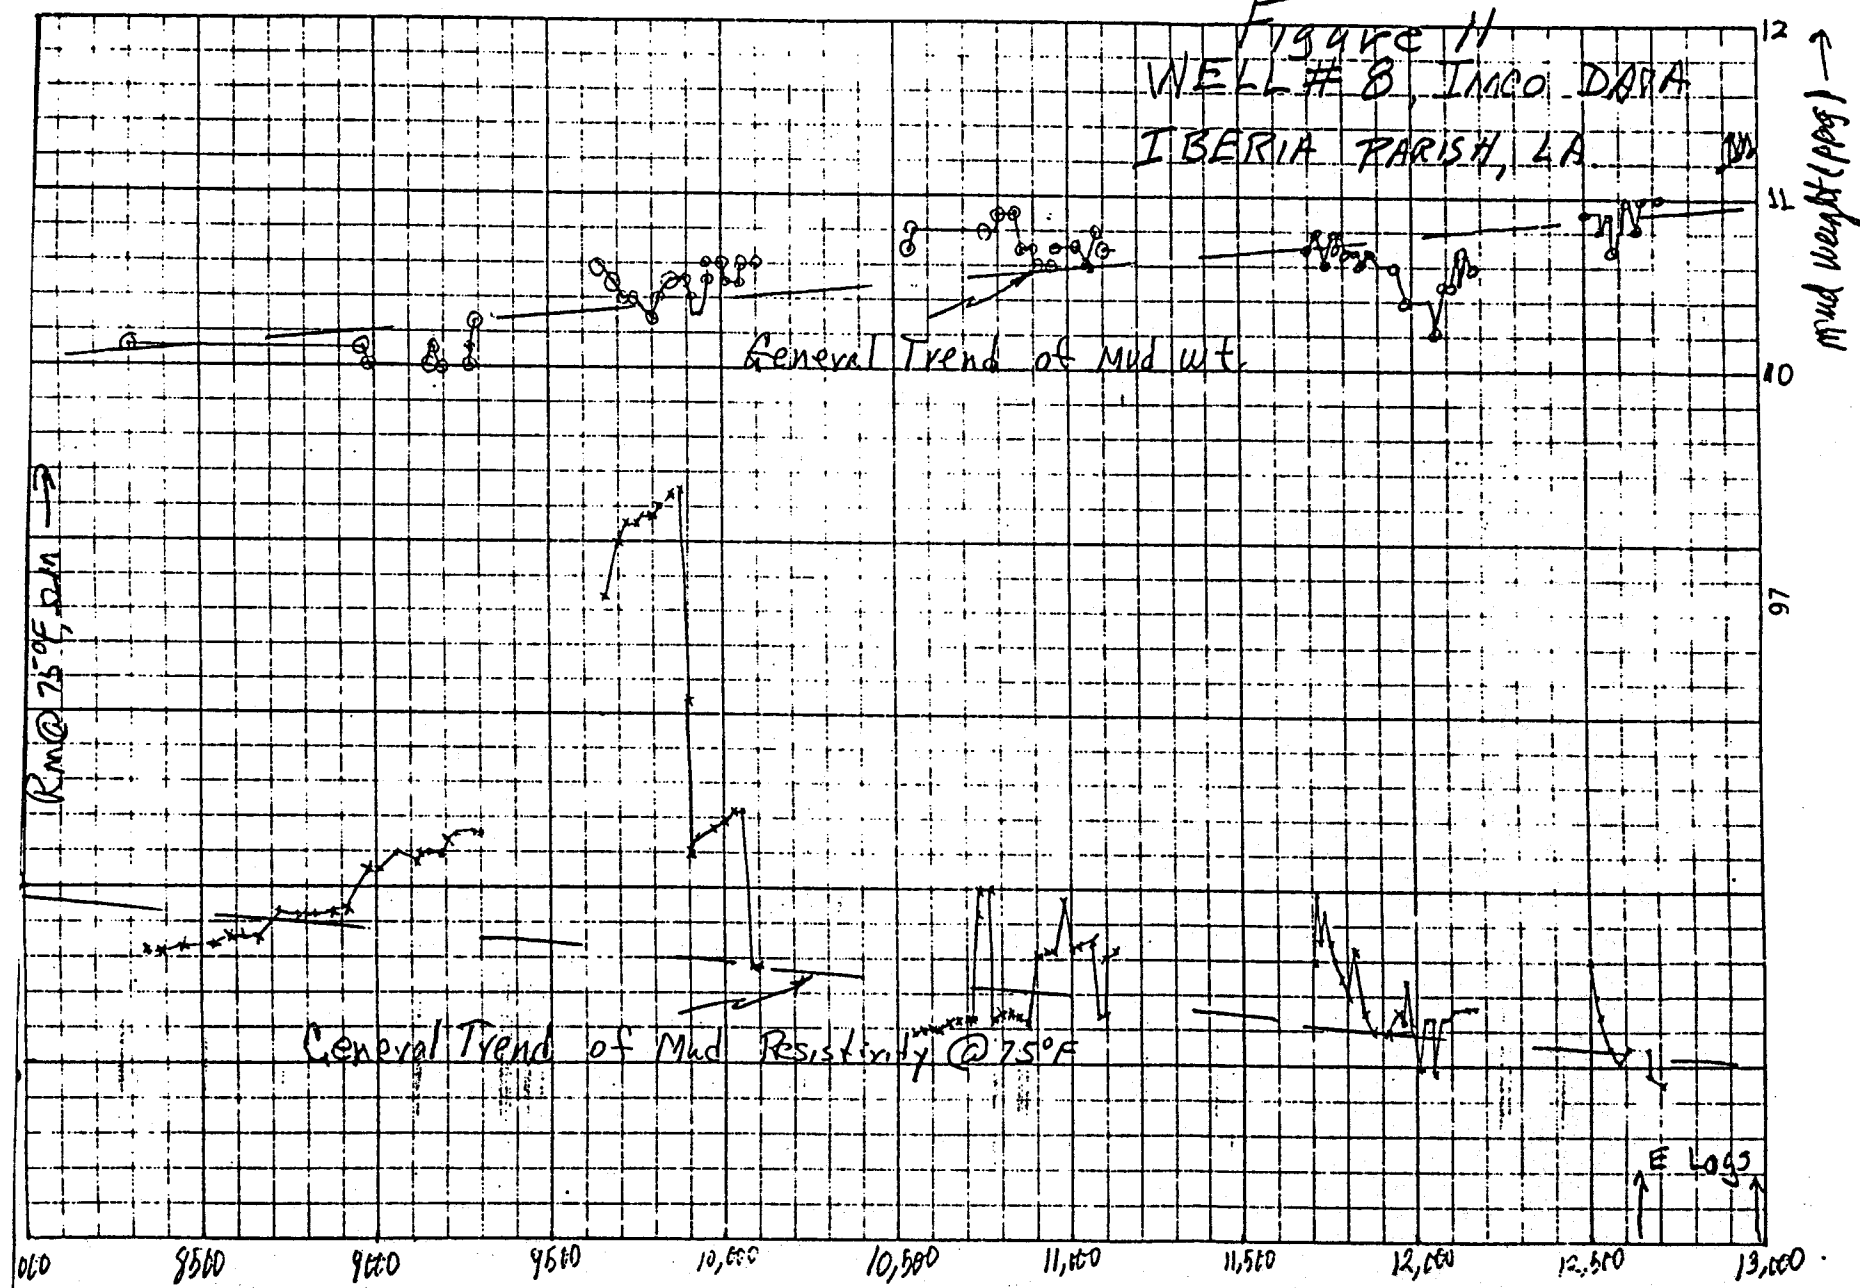 Figure 11
WELL # 8, IMCO DATA
IBERIA PARISH, LA
12
11
10
mud weight (ppg) →
General Trend of Mud wt.
Rm@75°F, Ωm →
97
General Trend of Mud Resistivity @ 75°F
E Logs
000 8500 9000 9500 10,000 10,500 11,000 11,500 12,000 12,500 13,000